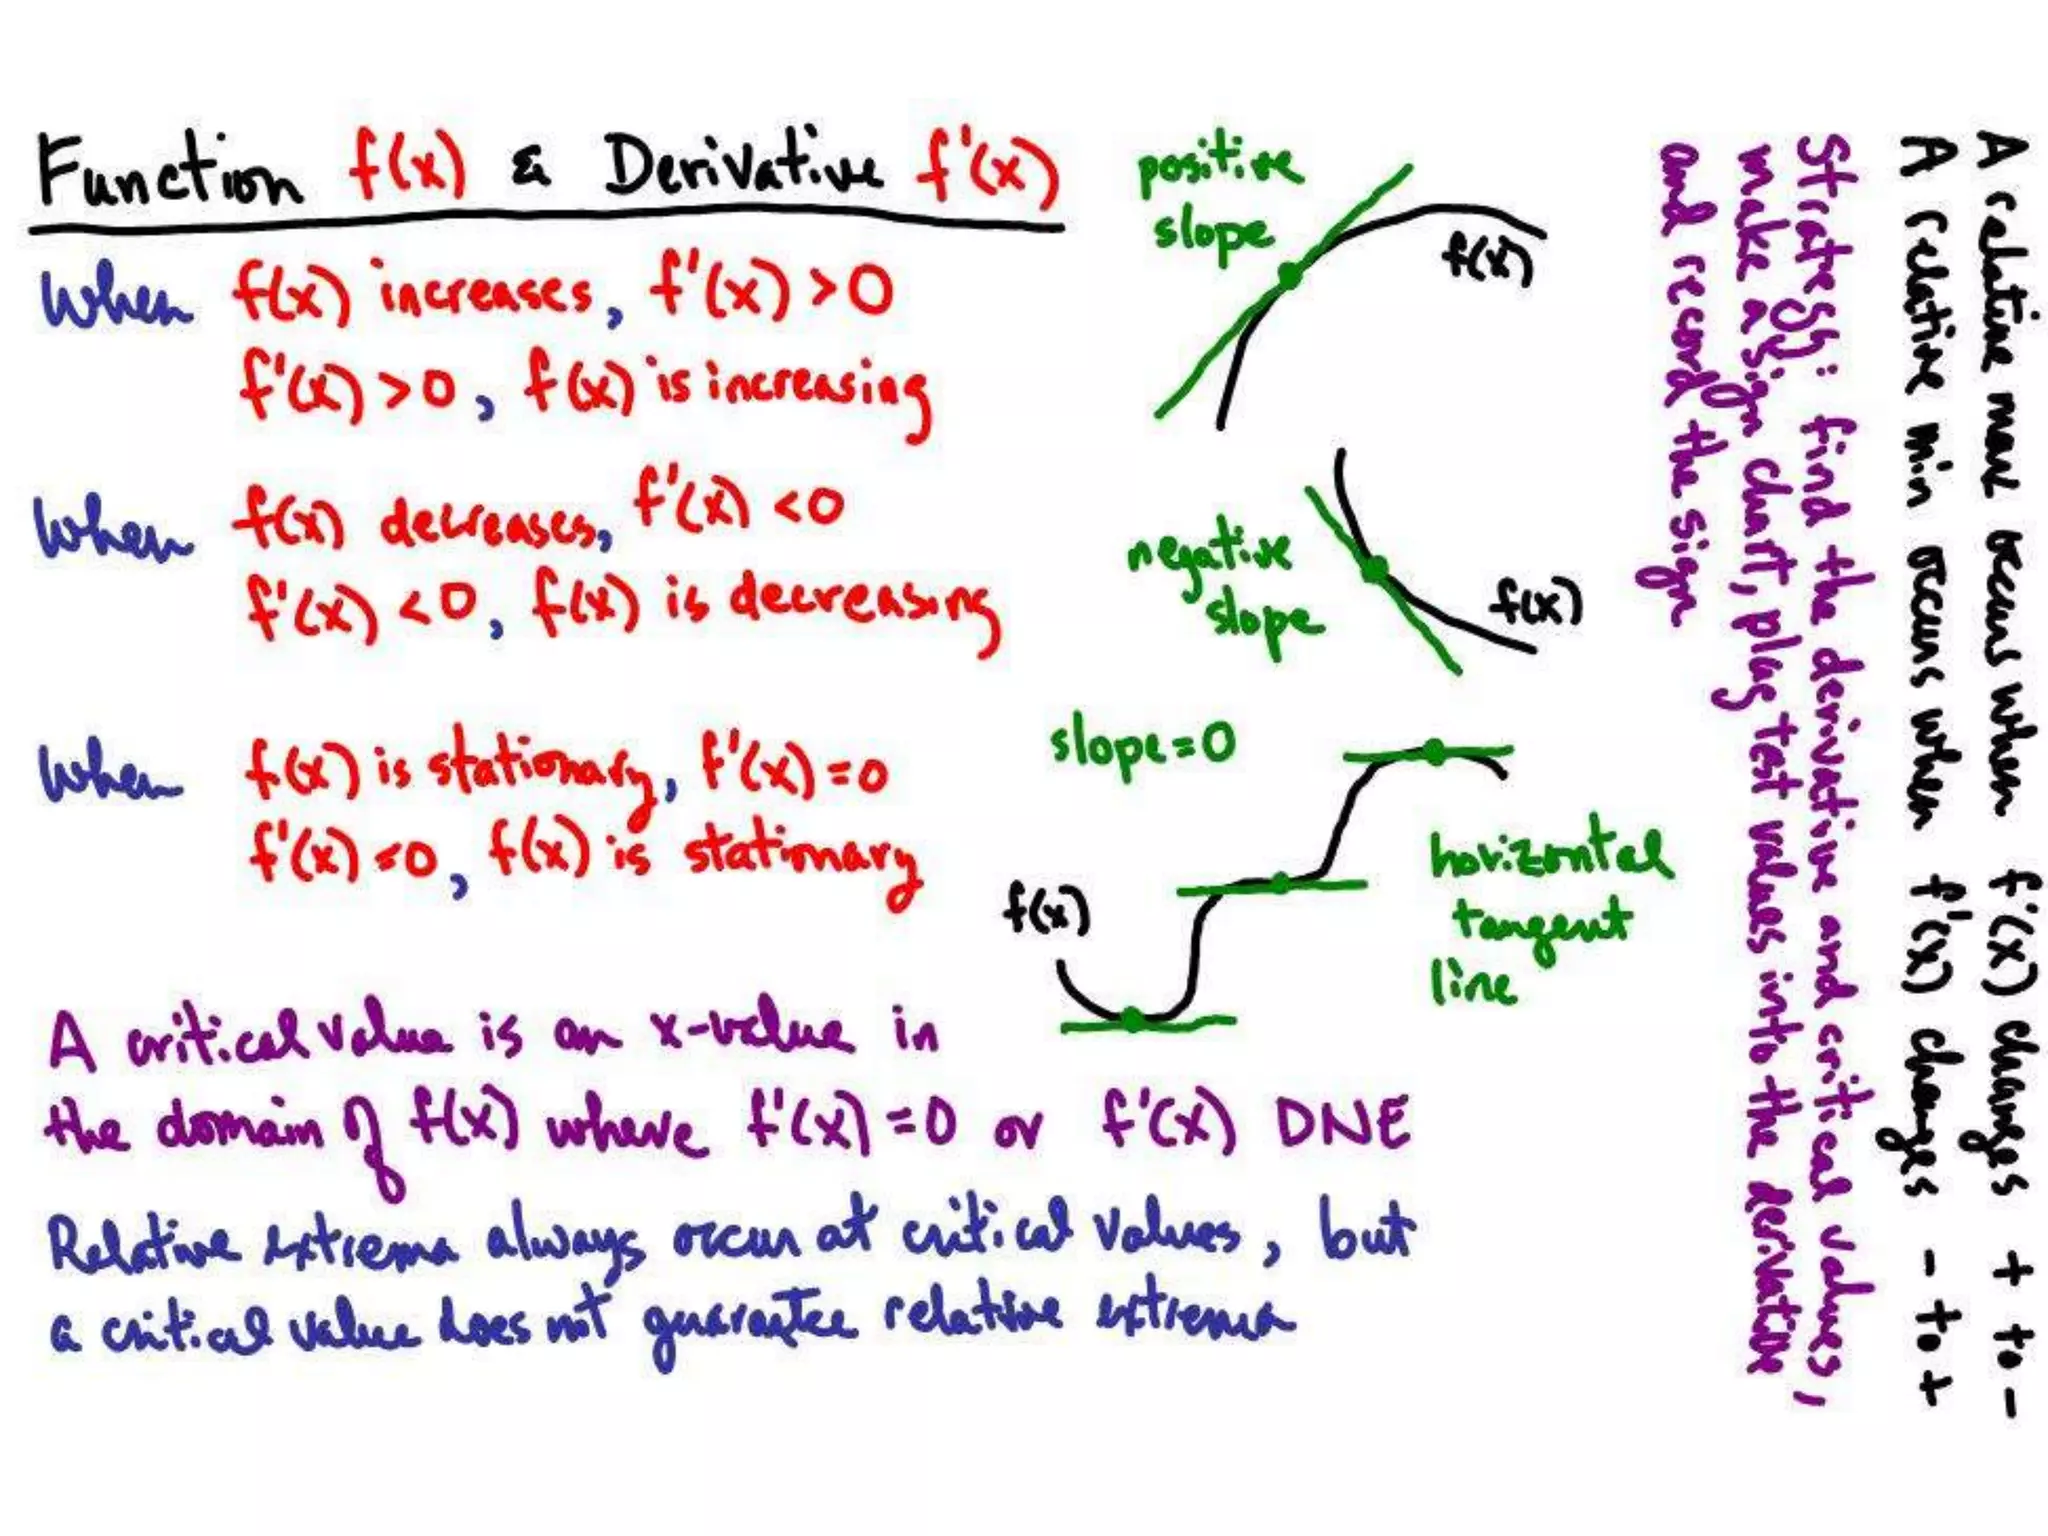 Function f(x) & Derivative f'(x)
When f(x) increases, f'(x) > 0
f'(x) > 0, f(x) is increasing
When f(x) decreases, f'(x) < 0
f'(x) < 0, f(x) is decreasing
When f(x) is stationary, f'(x) = 0
f'(x) = 0, f(x) is stationary
A critical value is an x-value in
the domain of f(x) where f'(x) = 0 or f'(x) DNE
Relative extrema always occur at critical values, but
a critical value does not guarantee relative extrema
positive
slope
f(x)
negative
slope
f(x)
slope = 0
f(x)
horizontal
tangent
line
A relative max occurs when f'(x) changes + to -
A relative min occurs when f'(x) changes - to +
Strategy: find the derivative and critical values,
make a sign chart, plug test values into the derivative
and record the sign